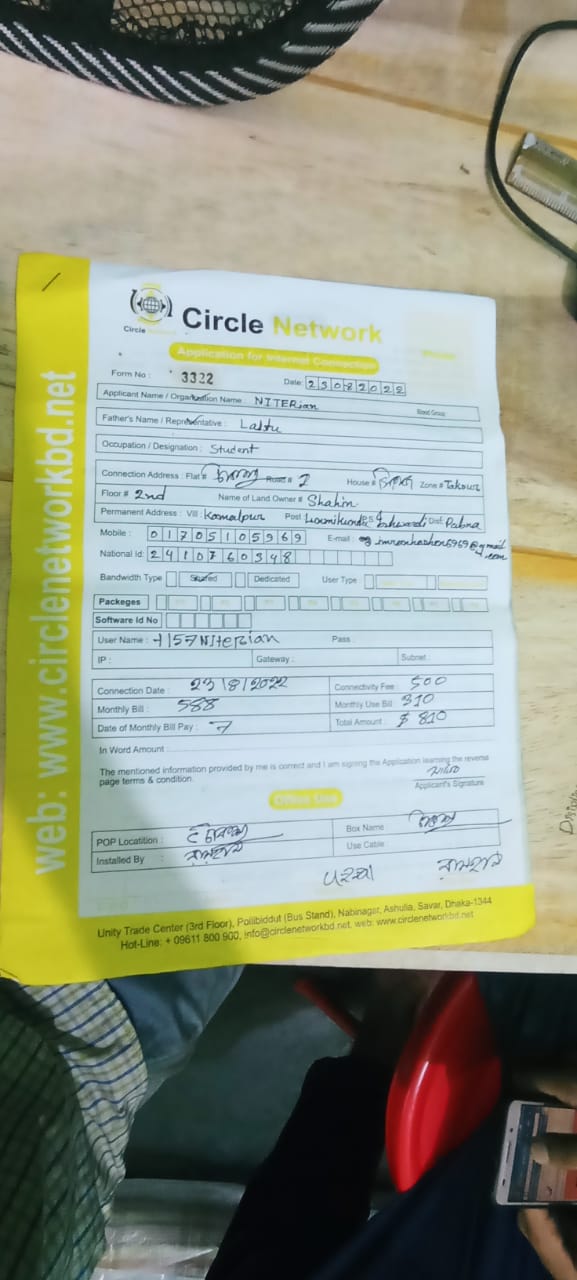 web: www.circlenetworkbd.net
Circle Network
Circle
Application for Internet Connection
Form No : 3322 Date: 23082022
Applicant Name / Organization Name : NITERian Blood Group
Father's Name / Representative : Laltu
Occupation / Designation : Student
Connection Address : Flat# Road # 2 House # Zone #
Floor # 2nd Name of Land Owner # Shahin
Permanent Address : Vill : Kamalpur Post : P.S Ishwardi Dist: Pabna
Mobile : 01705105969 E-mail :
National Id: 2410760348
Bandwidth Type Shared Dedicated User Type :
Packeges
Software Id No
User Name : Pass :
IP : Gateway : Subnet :
Connection Date : 23/8/2022 Connectivity Fee : 500
Monthly Bill : 588 Monthly Use Bill : 310
Date of Monthly Bill Pay : 7 Total Amount : 810
In Word Amount :
The mentioned information provided by me is correct and I am signing the Application learning the reverse
page terms & condition.
Applicant's Signature
Office Use
POP Locatition : Box Name
Installed By : Use Cable
Unity Trade Center (3rd Floor), Pollibiddut (Bus Stand), Nabinagar, Ashulia, Savar, Dhaka-1344
Hot-Line: + 09611 800 900, info@circlenetworkbd.net, web: www.circlenetworkbd.net